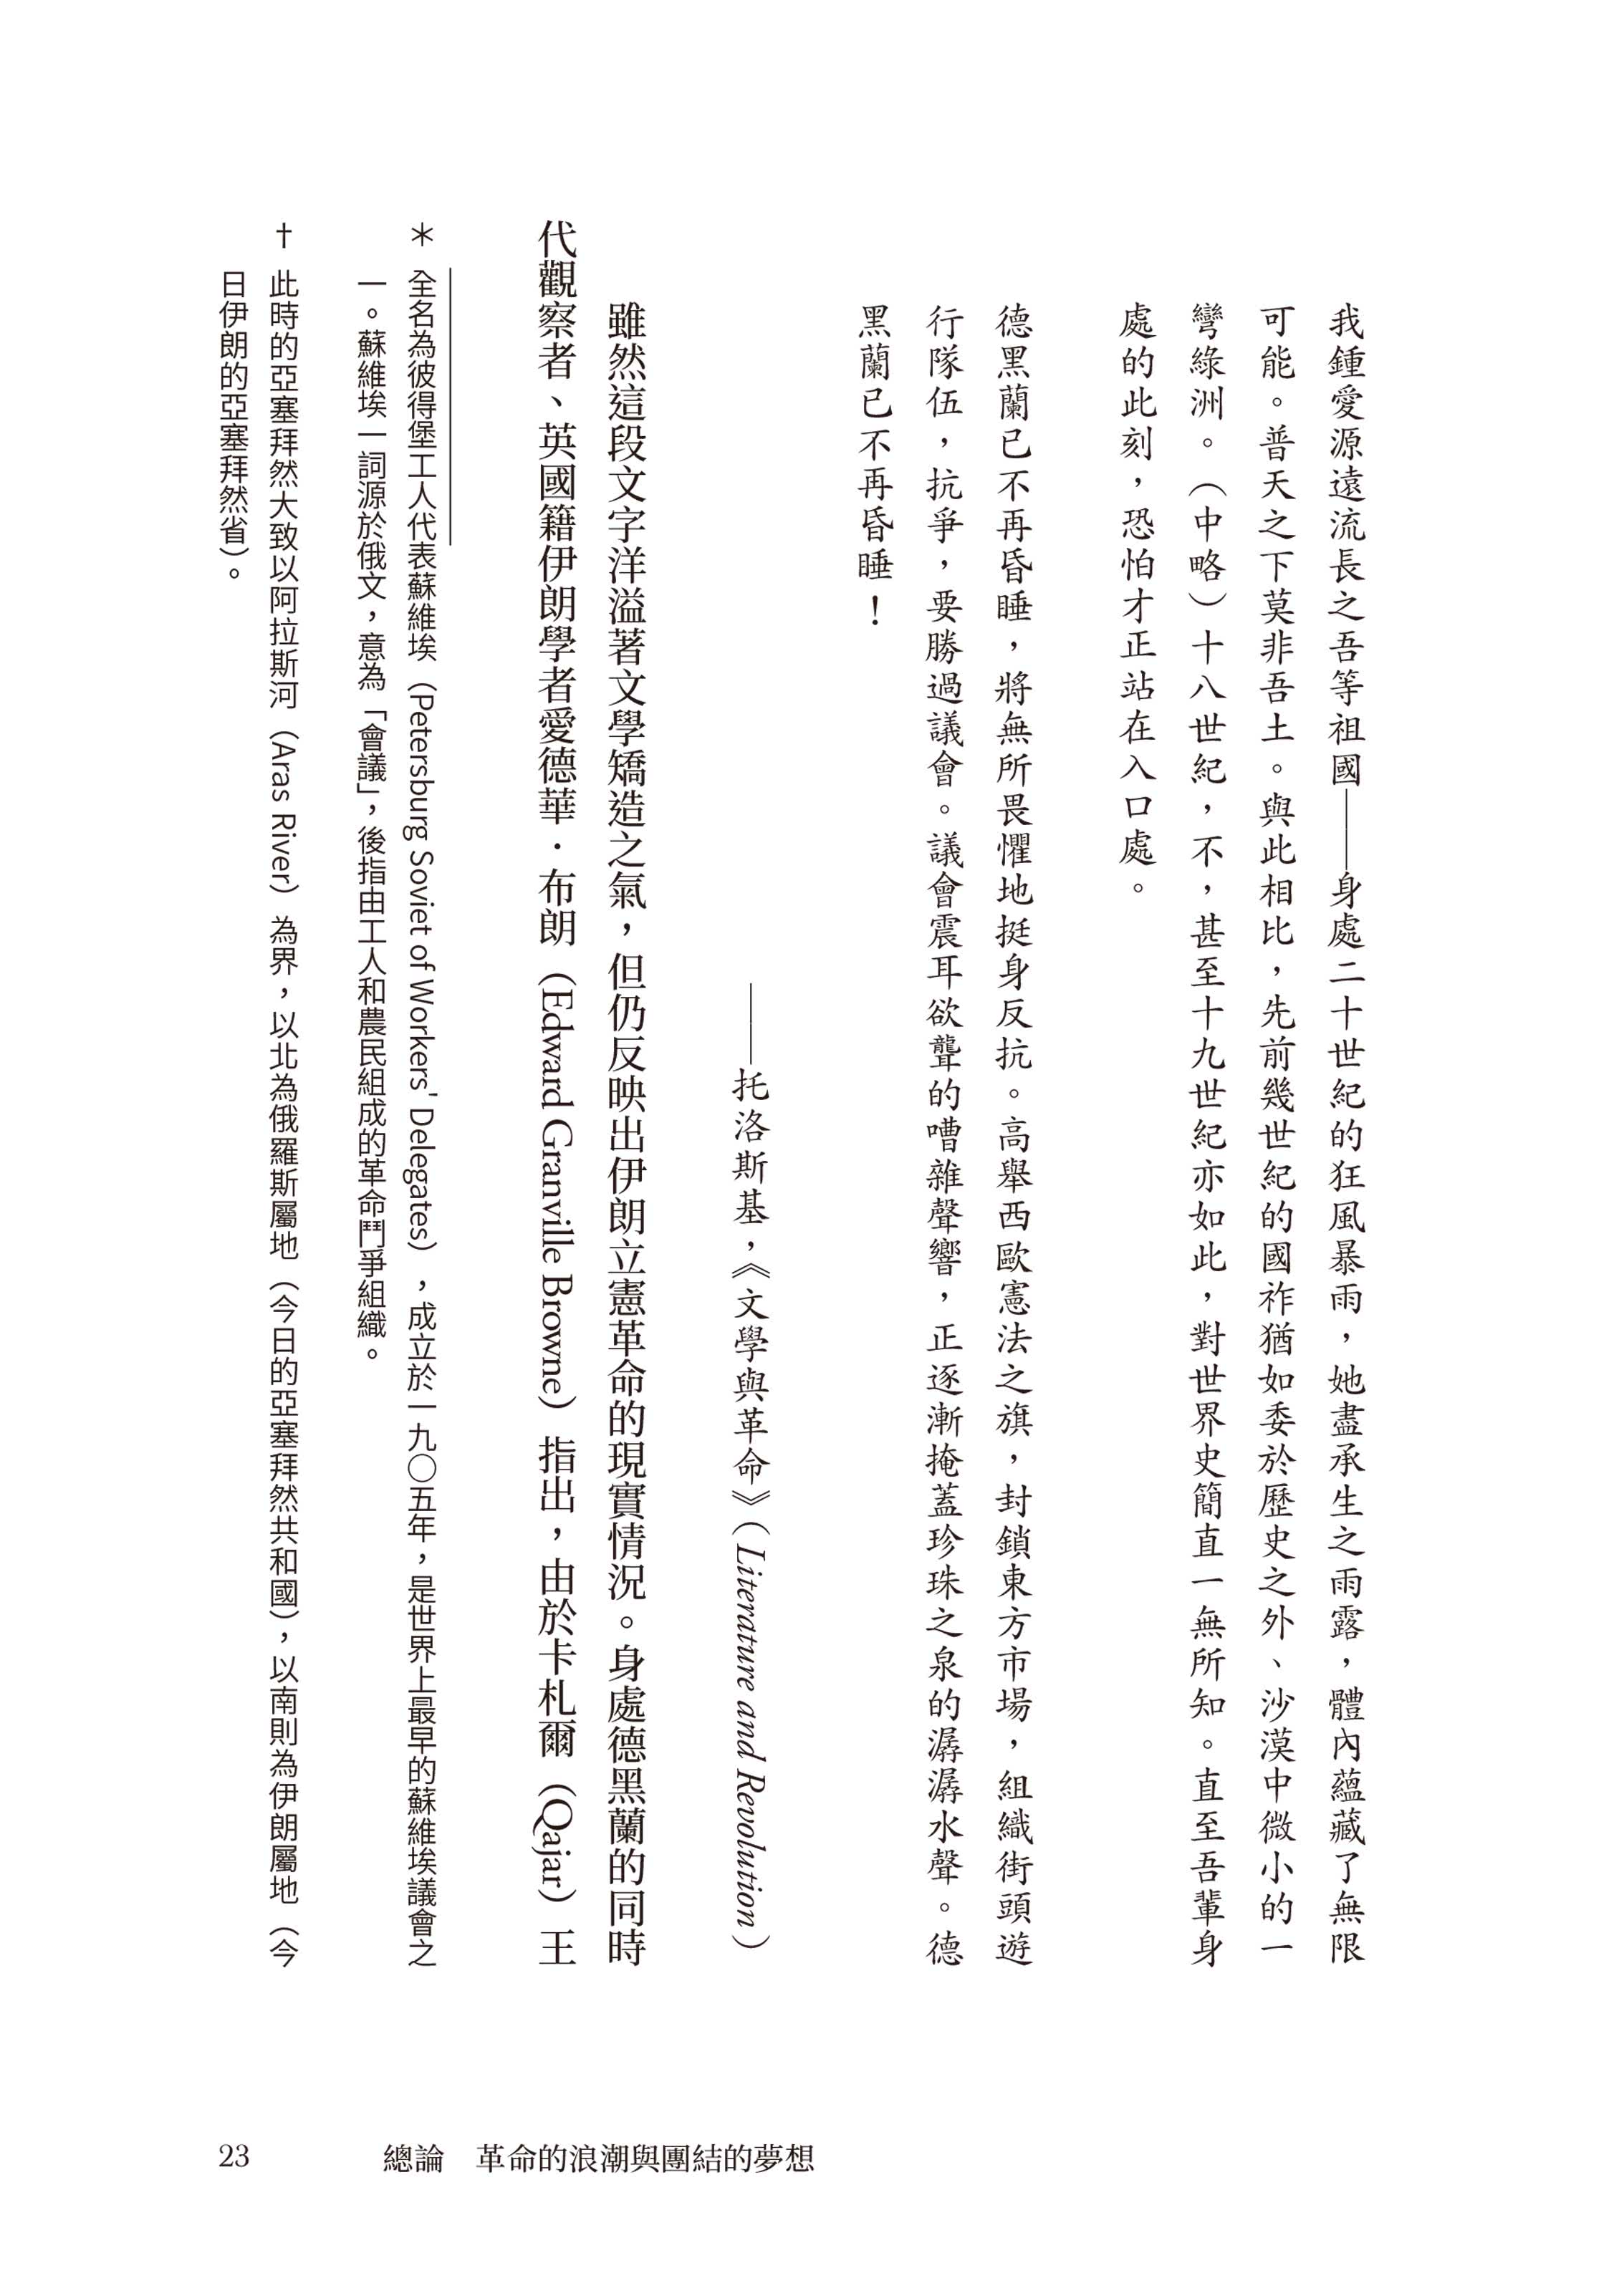 我鍾愛源遠流長之吾等祖國——身處二十世紀的狂風暴雨，她盡承生之雨露，體內蘊藏了無限
可能。普天之下莫非吾土。與此相比，先前幾世紀的國祚猶如委於歷史之外、沙漠中微小的一
彎綠洲。（中略）十八世紀，不，甚至十九世紀亦如此，對世界史簡直一無所知。直至吾輩身
處的此刻，恐怕才正站在入口處。
德黑蘭已不再昏睡，將無所畏懼地挺身反抗。高舉西歐憲法之旗，封鎖東方市場，組織街頭遊
行隊伍，抗爭，要勝過議會。議會震耳欲聾的嘈雜聲響，正逐漸掩蓋珍珠之泉的潺潺水聲。德
黑蘭已不再昏睡！
——托洛斯基，《文學與革命》（Literature and Revolution）
雖然這段文字洋溢著文學矯造之氣，但仍反映出伊朗立憲革命的現實情況。身處德黑蘭的同時
代觀察者、英國籍伊朗學者愛德華．布朗（Edward Granville Browne）指出，由於卡札爾（Qajar）王
＊ 全名為彼得堡工人代表蘇維埃（Petersburg Soviet of Workers' Delegates），成立於一九〇五年，是世界上最早的蘇維埃議會之
一。蘇維埃一詞源於俄文，意為「會議」，後指由工人和農民組成的革命鬥爭組織。
† 此時的亞塞拜然大致以阿拉斯河（Aras River）為界，以北為俄羅斯屬地（今日的亞塞拜然共和國），以南則為伊朗屬地（今
日伊朗的亞塞拜然省）。
23 總論 革命的浪潮與團結的夢想